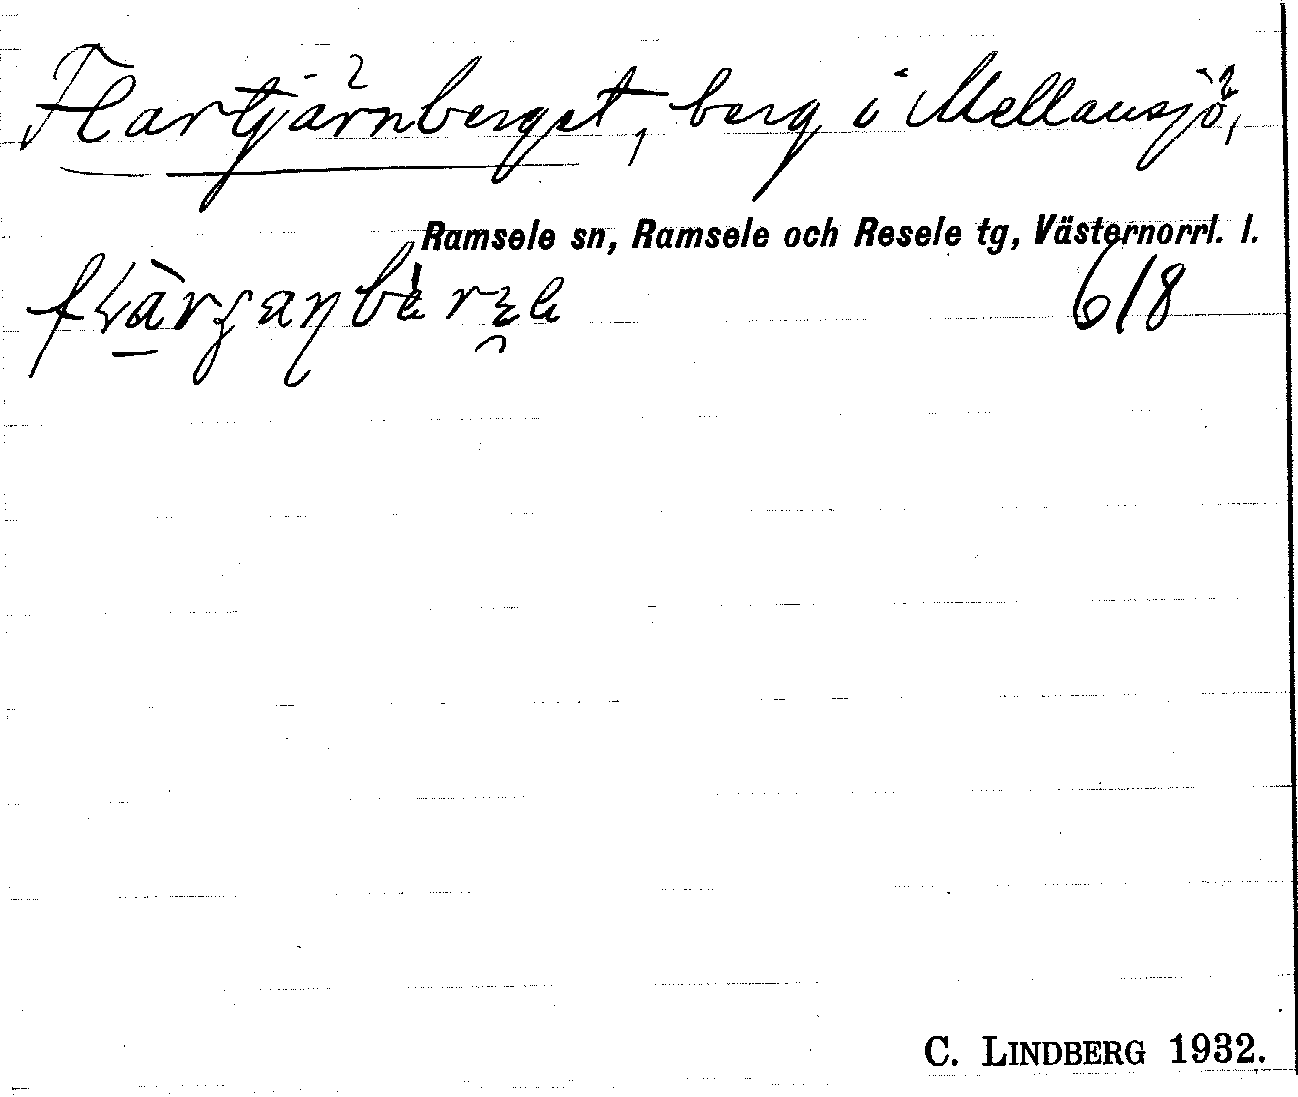 Flartjärnberget, berg i Mellansjö,
Ramsele sn, Ramsele och Resele tg, Västernorrl. l.
618
C. LINDBERG 1932.